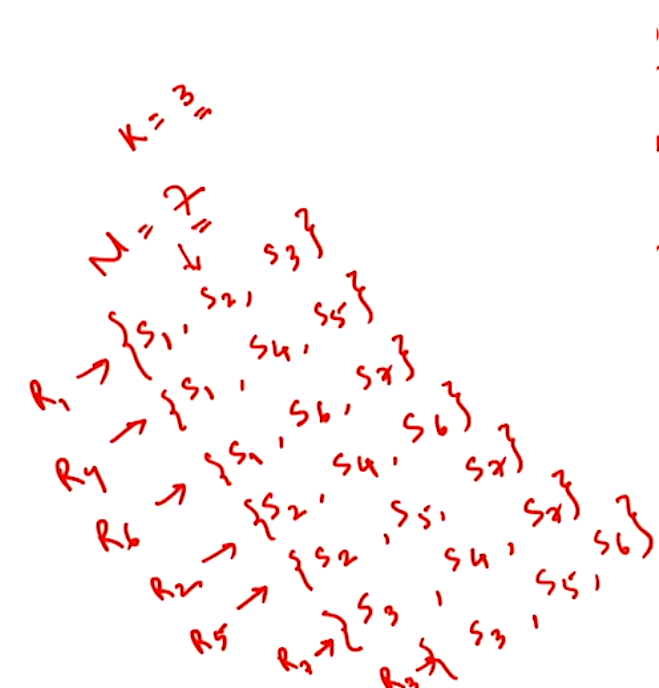 K = 3
N = 7
↓
R1 → {S1, S2, S3}
R4 → {S1, S4, S5}
R6 → {S1, S6, S7}
R2 → {S2, S4, S6}
R5 → {S2, S5, S7}
→ {S3, S4, S7}
R3 → {S3, S5, S6}